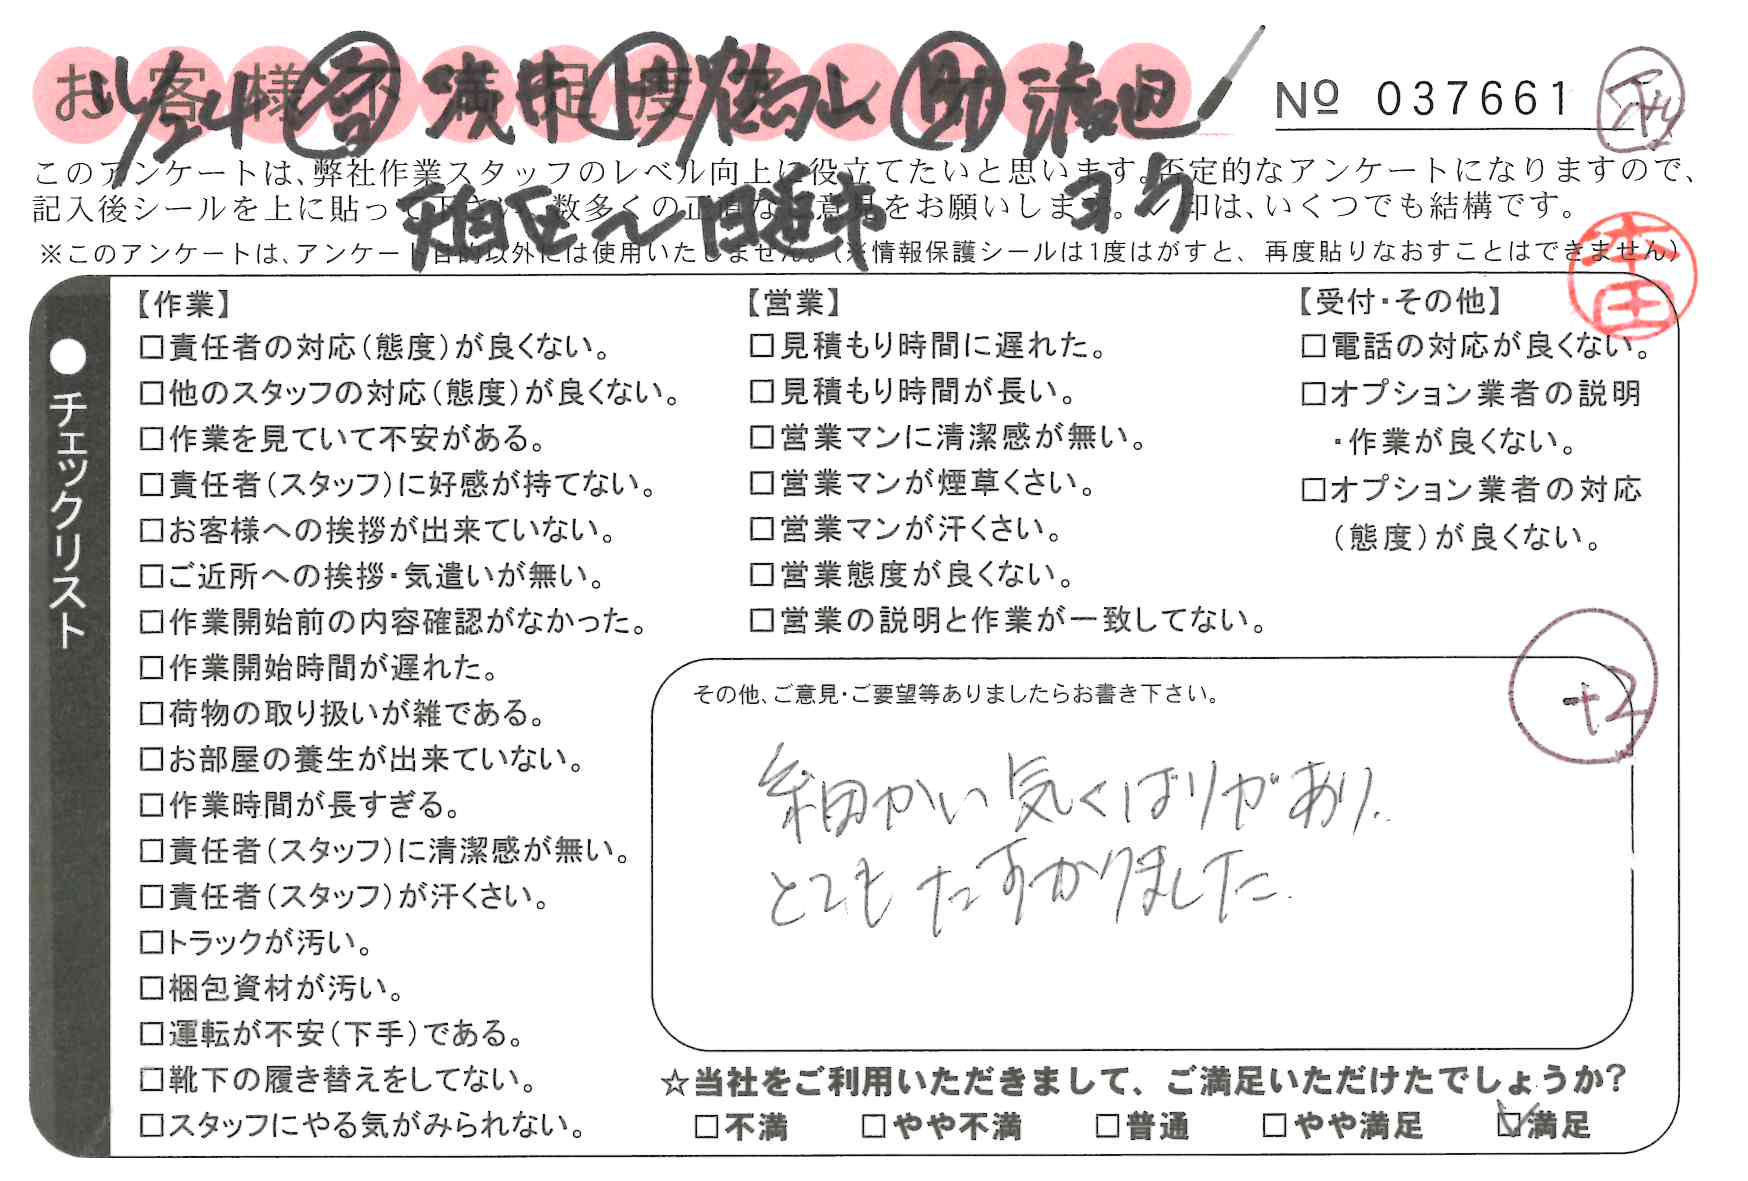 お客様不満足度アンケート
4/24 営 浅井 ト 鶴山 助 渡辺
Nº 037661
このアンケートは、弊社作業スタッフのレベル向上に役立てたいと思います。否定的なアンケートになりますので、
記入後シールを上に貼って下さい。数多くの正直なご意見をお願いします。レ印は、いくつでも結構です。
〜日進市 ヨク
※このアンケートは、アンケート目的以外には使用いたしません。(※情報保護シールは1度はがすと、再度貼りなおすことはできません)
本田
●チェックリスト
【作業】
□責任者の対応(態度)が良くない。
□他のスタッフの対応(態度)が良くない。
□作業を見ていて不安がある。
□責任者(スタッフ)に好感が持てない。
□お客様への挨拶が出来ていない。
□ご近所への挨拶・気遣いが無い。
□作業開始前の内容確認がなかった。
□作業開始時間が遅れた。
□荷物の取り扱いが雑である。
□お部屋の養生が出来ていない。
□作業時間が長すぎる。
□責任者(スタッフ)に清潔感が無い。
□責任者(スタッフ)が汗くさい。
□トラックが汚い。
□梱包資材が汚い。
□運転が不安(下手)である。
□靴下の履き替えをしてない。
□スタッフにやる気がみられない。
【営業】
□見積もり時間に遅れた。
□見積もり時間が長い。
□営業マンに清潔感が無い。
□営業マンが煙草くさい。
□営業マンが汗くさい。
□営業態度が良くない。
□営業の説明と作業が一致してない。
【受付・その他】
□電話の対応が良くない。
□オプション業者の説明
・作業が良くない。
□オプション業者の対応
(態度)が良くない。
その他、ご意見・ご要望等ありましたらお書き下さい。
+2
細かい気くばりがあり、
とてもたすかりました.
☆当社をご利用いただきまして、ご満足いただけたでしょうか?
□不満 □やや不満 □普通 □やや満足 ☑満足